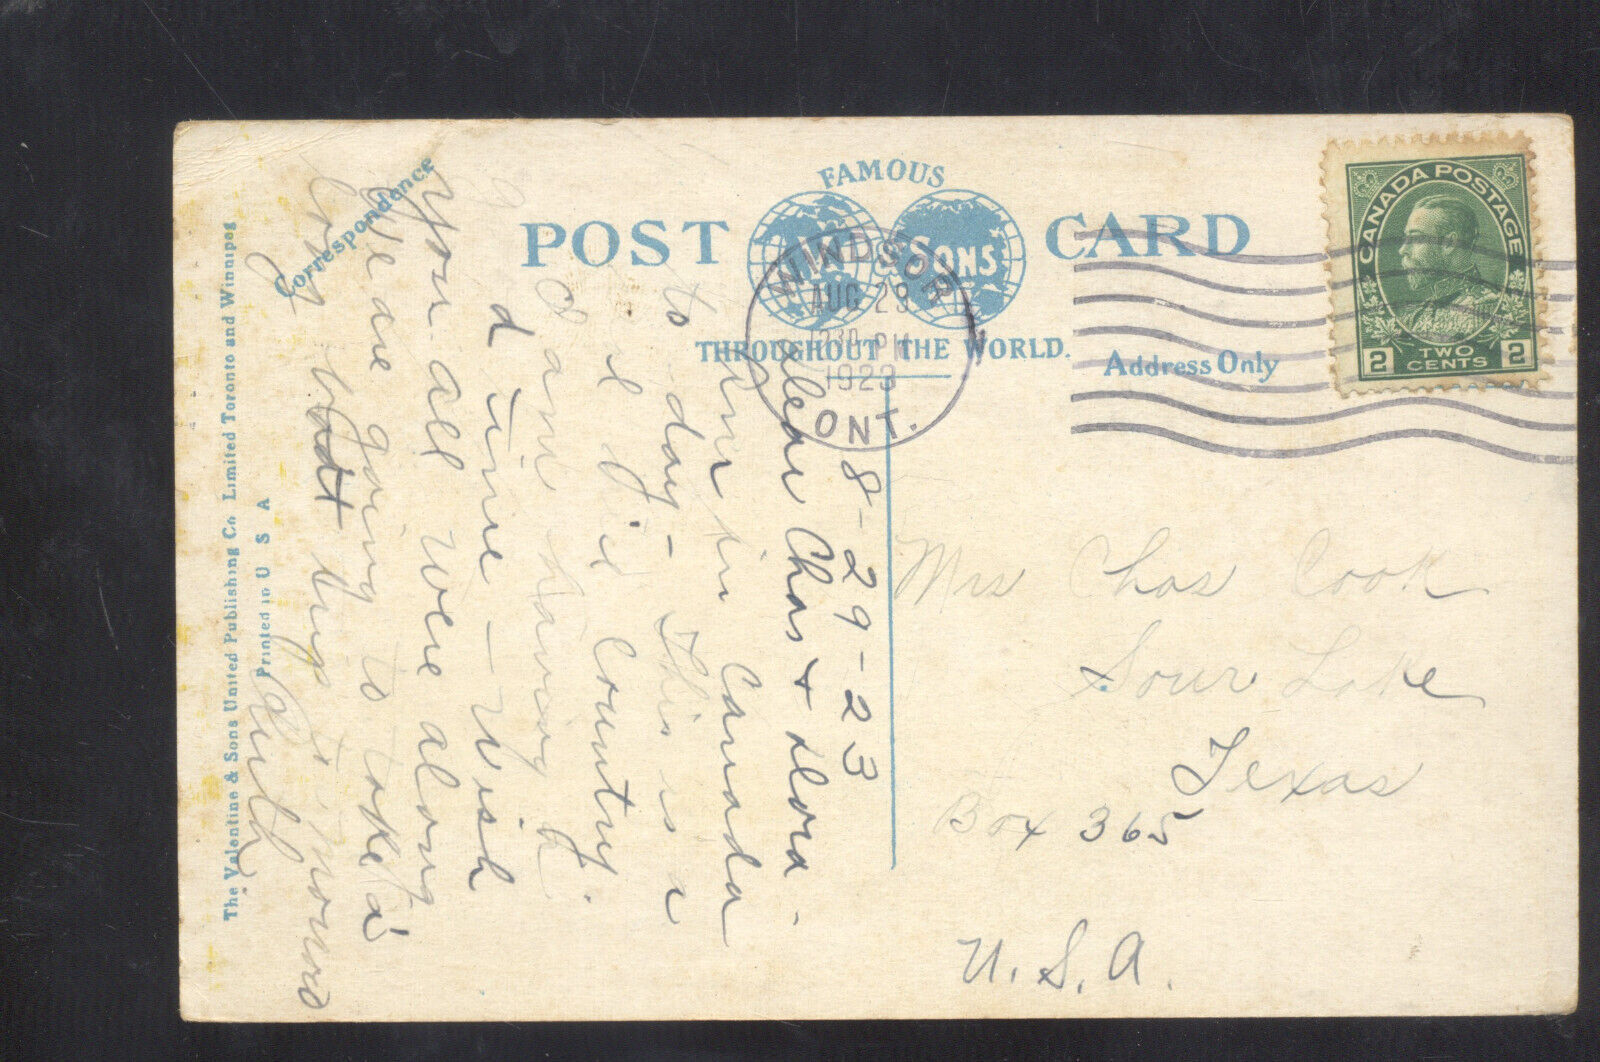 FAMOUS
POST CARD
& SONS
THROUGHOUT THE WORLD.
Address Only
CANADA POSTAGE
2 TWO CENTS 2
WINDSOR
AUG 29
PM
1923
ONT.
Correspondence
8-29-23
Dear Chas & Flora -
Am in Canada
to day - This is a
Country.
I am having
d time - Wish
you all were along
We are going to take a
long boat trip
Ruth
Mrs Chas Cook
Sour Lake
Texas
Box 365
U.S.A.
The Valentine & Sons United Publishing Co. Limited Toronto and Winnipeg
Printed in U S A